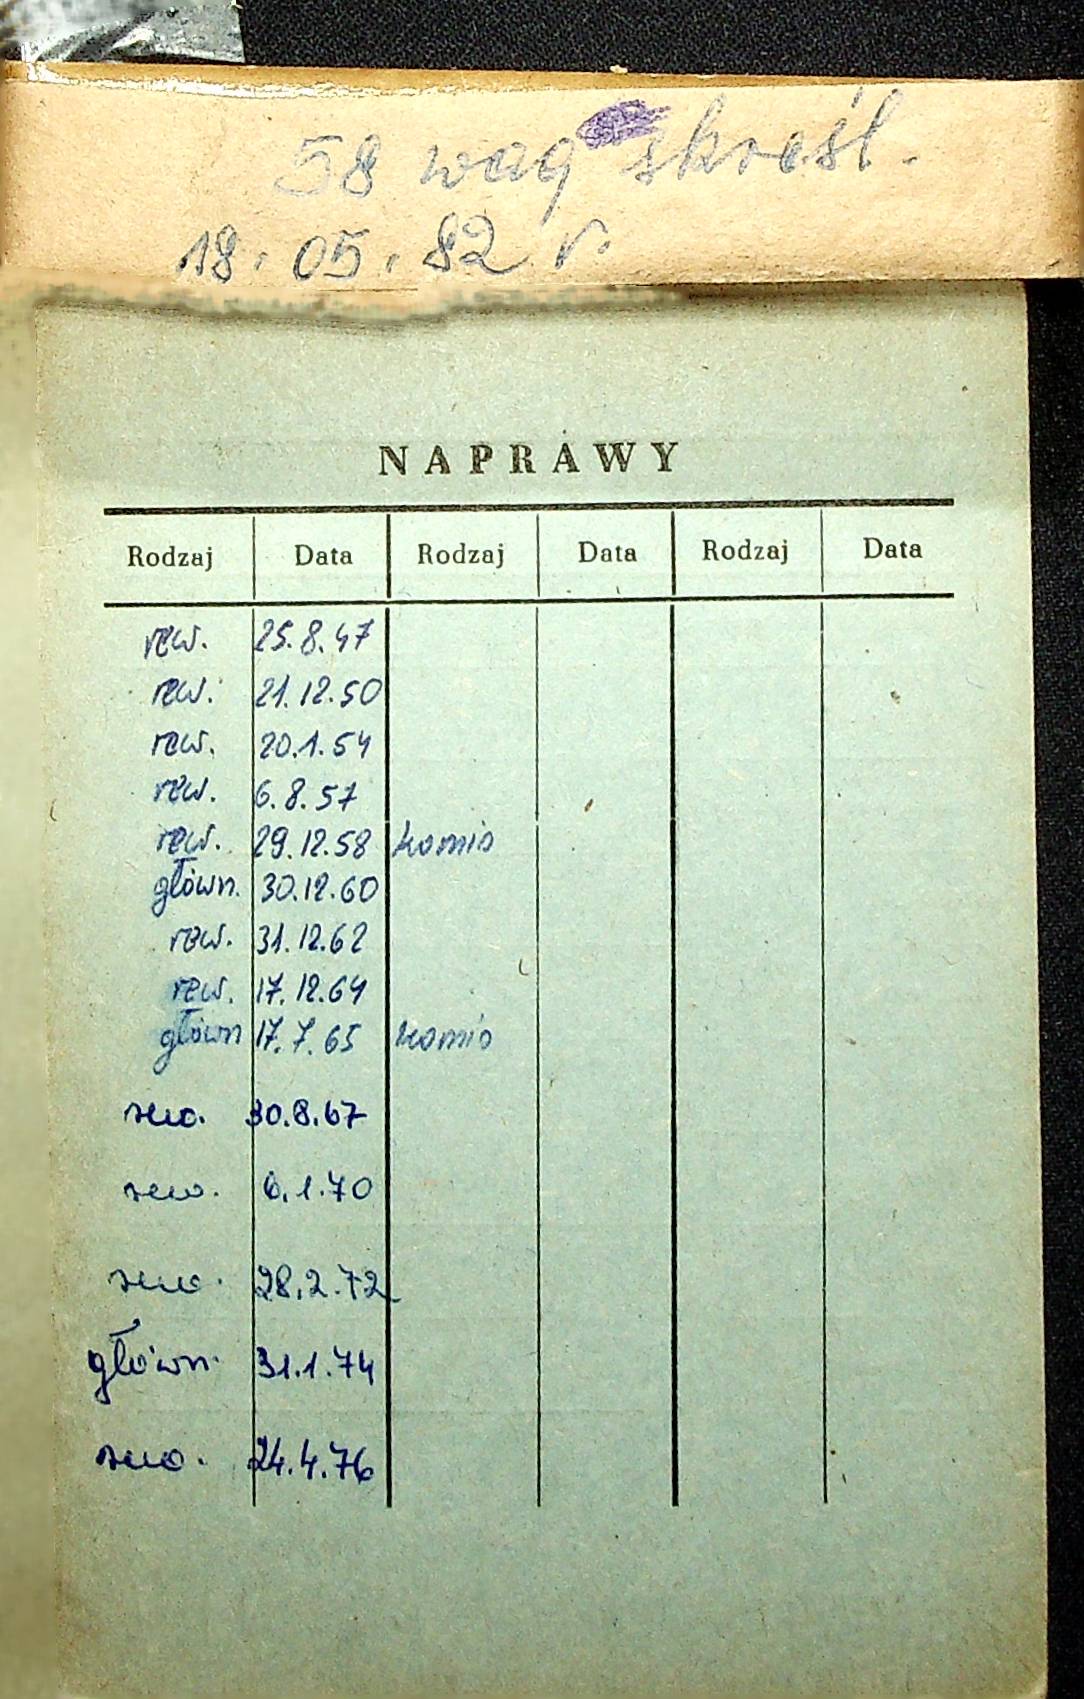 58 wag skreśl.
18.05.82 r.
NAPRAWY
Rodzaj Data Rodzaj Data Rodzaj Data
rew. 25.8.47
rew. 21.12.50
rew. 20.1.54
rew. 6.8.57
rew. 29.12.58 komis
główn. 30.12.60
rew. 31.12.62
rew. 17.12.64
główn 17.7.65 komis
rew. 30.8.67
rew. 6.1.70
rew. 28.2.72
główn. 31.1.74
rew. 24.4.76